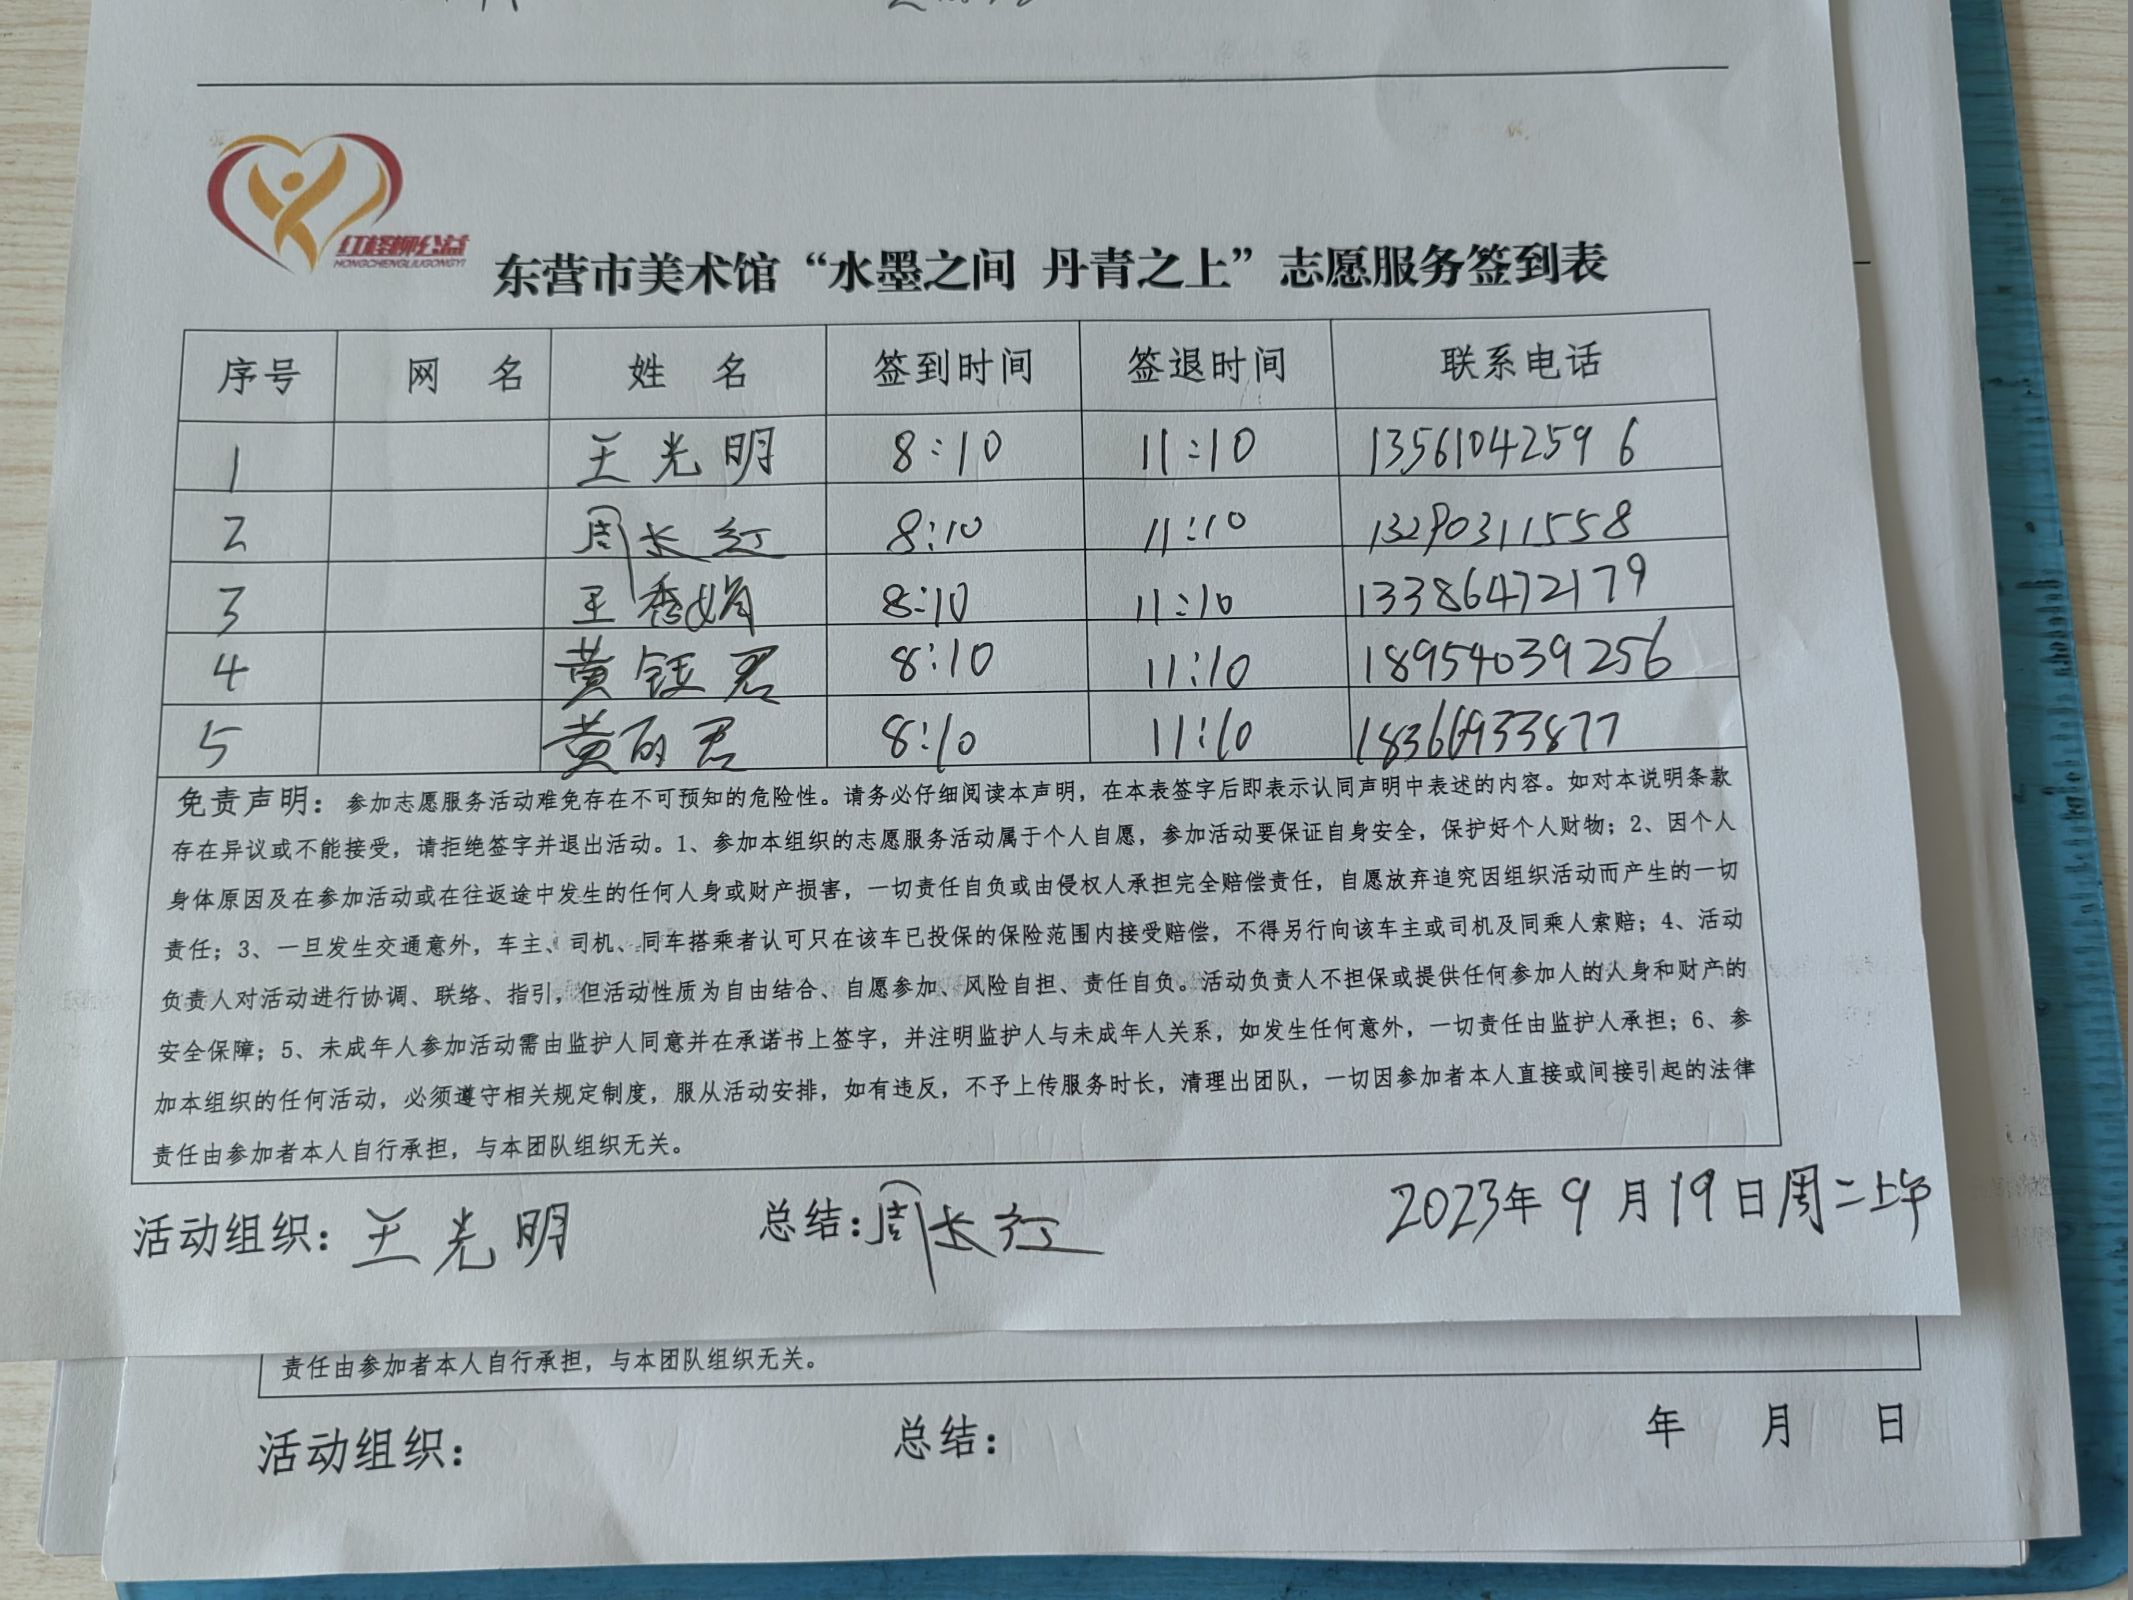 红柽柳公益
HONGCHENGLIUGONGYI
东营市美术馆“水墨之间 丹青之上”志愿服务签到表
序号 网 名 姓 名 签到时间 签退时间 联系电话
1 王光明 8:10 11:10 13561042596
2 周长红 8:10 11:10 13290311558
3 王秀娟 8:10 11:10 13386472179
4 黄钰君 8:10 11:10 18954039256
5 黄丽君 8:10 11:10 18366933877
免责声明：参加志愿服务活动难免存在不可预知的危险性。请务必仔细阅读本声明，在本表签字后即表示认同声明中表述的内容。如对本说明条款
存在异议或不能接受，请拒绝签字并退出活动。1、参加本组织的志愿服务活动属于个人自愿，参加活动要保证自身安全，保护好个人财物；2、因个人
身体原因及在参加活动或在往返途中发生的任何人身或财产损害，一切责任自负或由侵权人承担完全赔偿责任，自愿放弃追究因组织活动而产生的一切
责任；3、一旦发生交通意外，车主、司机、同车搭乘者认可只在该车已投保的保险范围内接受赔偿，不得另行向该车主或司机及同乘人索赔；4、活动
负责人对活动进行协调、联络、指引，但活动性质为自由结合、自愿参加、风险自担、责任自负。活动负责人不担保或提供任何参加人的人身和财产的
安全保障；5、未成年人参加活动需由监护人同意并在承诺书上签字，并注明监护人与未成年人关系，如发生任何意外，一切责任由监护人承担；6、参
加本组织的任何活动，必须遵守相关规定制度，服从活动安排，如有违反，不予上传服务时长，清理出团队，一切因参加者本人直接或间接引起的法律
责任由参加者本人自行承担，与本团队组织无关。
活动组织：王光明 总结：周长红 2023年9月19日周二上午
责任由参加者本人自行承担，与本团队组织无关。
活动组织： 总结： 年 月 日